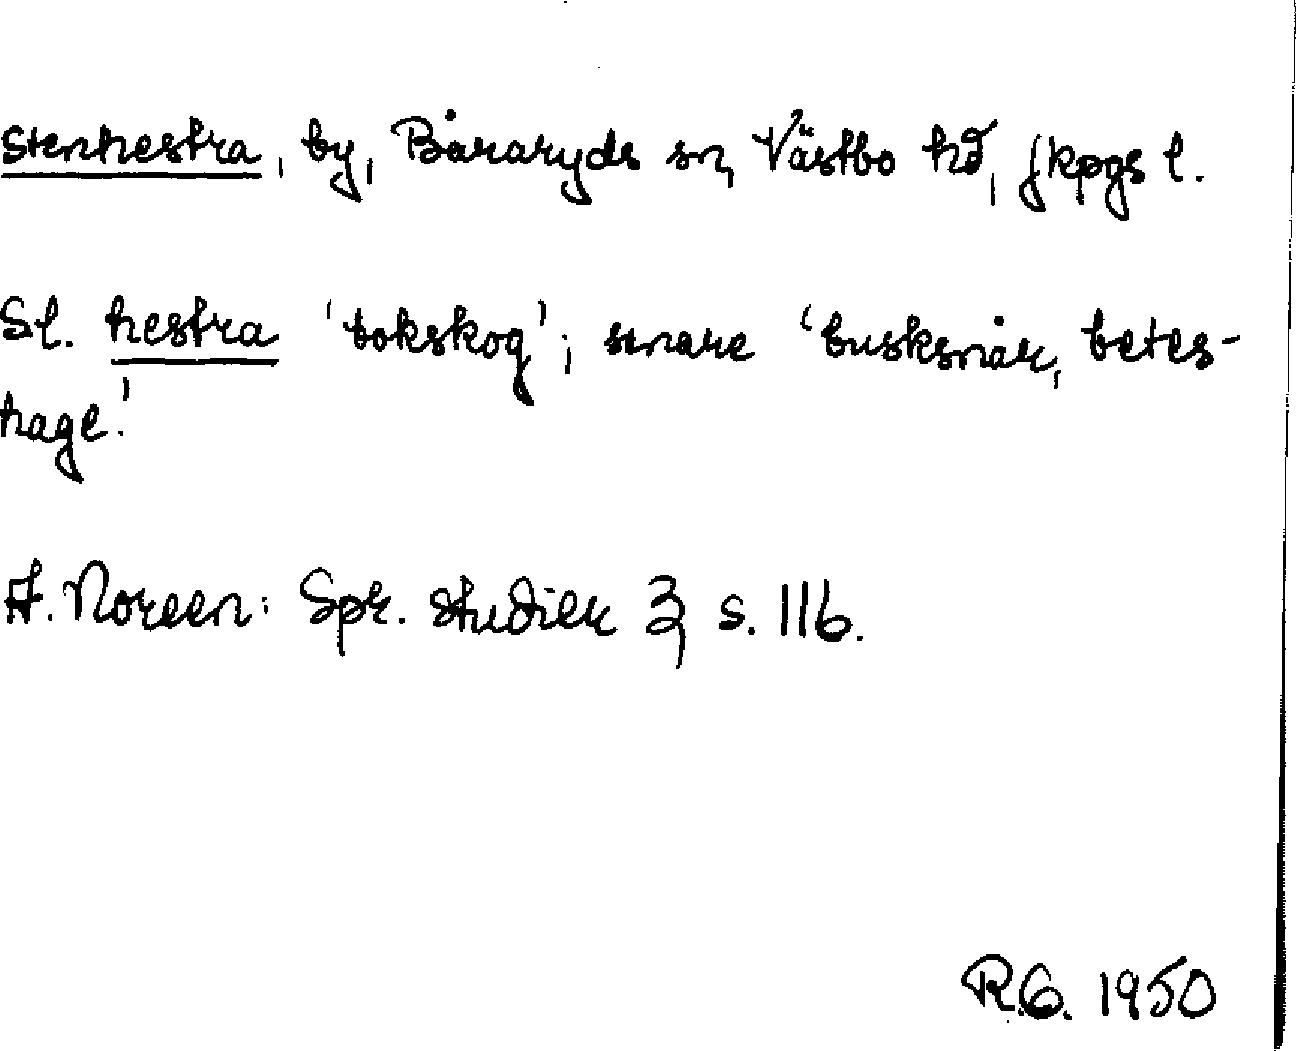 Stenhestra, by, Båraryds sn, Västbo hd, Jkpgs l.
Sl. hestra 'bokskog'; snare 'busksnår, betes-
hage.'
A. Noreen: Spr. studier 3, s. 116.
R.G. 1950